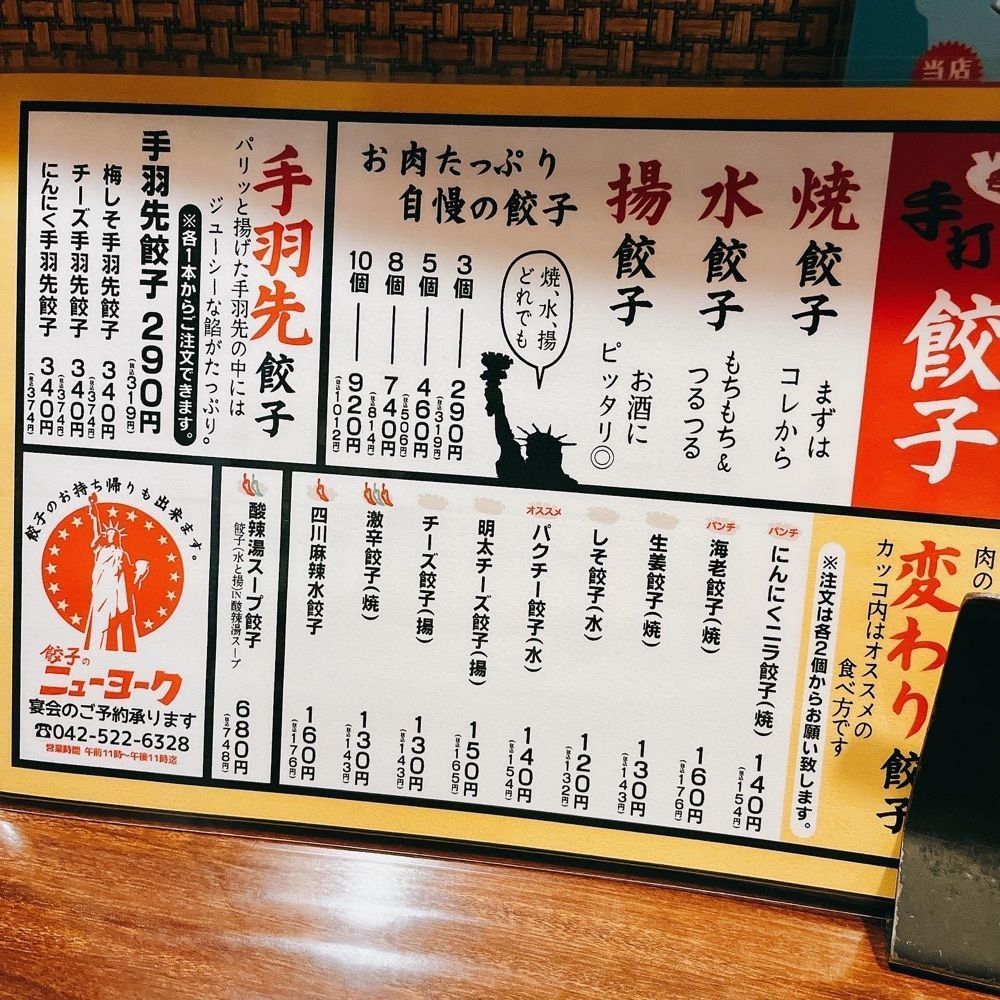 当店
手打
餃子
焼餃子
まずは
コレから
水餃子
もちもち&
つるつる
揚餃子
お酒に
ピッタリ◎
お肉たっぷり
自慢の餃子
焼、水、揚
どれでも
3個 290円
(税込319円)
5個 460円
(税込506円)
8個 740円
(税込814円)
10個 920円
(税込1012円)
手羽先餃子
パリッと揚げた手羽先の中には
ジューシーな餡がたっぷり。
※各1本からご注文できます。
手羽先餃子 290円
(税込319円)
梅しそ手羽先餃子 340円
(税込374円)
チーズ手羽先餃子 340円
(税込374円)
にんにく手羽先餃子 340円
(税込374円)
肉の
変わり餃子
カッコ内はオススメの
食べ方です
※注文は各2個からお願い致します。
パンチ
にんにくニラ餃子(焼) 140円
(税込154円)
パンチ
海老餃子(焼) 160円
(税込176円)
生姜餃子(焼) 130円
(税込143円)
しそ餃子(水) 120円
(税込132円)
オススメ
パクチー餃子(水) 140円
(税込154円)
明太チーズ餃子(揚) 150円
(税込165円)
チーズ餃子(揚) 130円
(税込143円)
激辛餃子(焼) 130円
(税込143円)
四川麻辣水餃子 160円
(税込176円)
酸辣湯スープ餃子 680円
餃子(水と揚)IN酸辣湯スープ
(税込748円)
餃子のお持ち帰りも出来ます。
餃子の
ニューヨーク
宴会のご予約承ります
☎042-522-6328
営業時間 午前11時〜午後11時迄